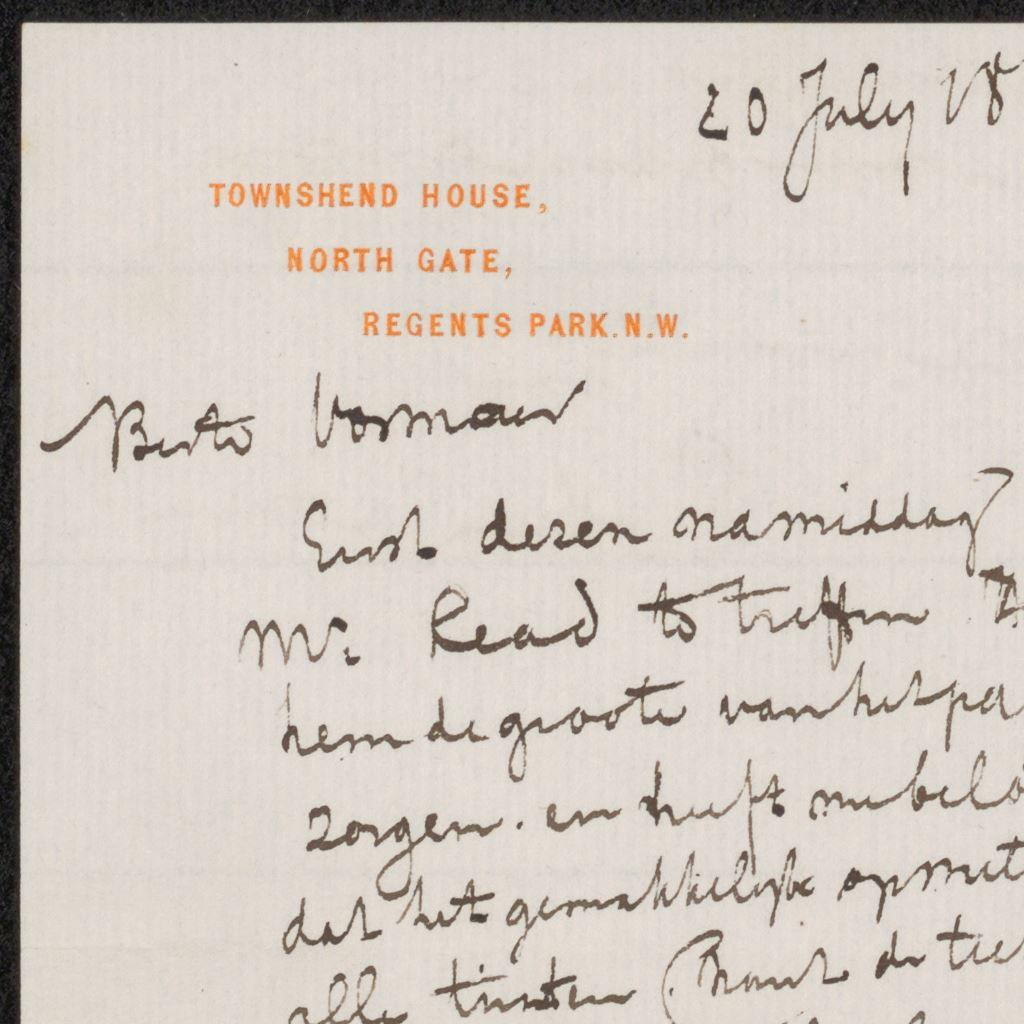 20 July 18
TOWNSHEND HOUSE,
NORTH GATE,
REGENTS PARK.N.W.
Beste Vosmaer
Eerst dezen namiddag
Mr. Read te treffen
hem de groote van het pa
zorgen. en heeft me belo
dat het gemakkelijk op met
alle tinten (want de